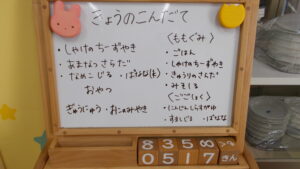 きょうのこんだて
・しゃけのちーずやき
・あまなつさらだ
・なめこじる ・ばなな(大)
おやつ
ぎゅうにゅう ・おこのみやき
〈ももぐみ〉
・ごはん
・しゃけのちーずやき
・きゅうりのさらだ
・みそしる
〈ごごしょく〉
・にんじんしらすがゆ
・すましじる ・ばなな
8 3 5 8
0 5 1 7 きん